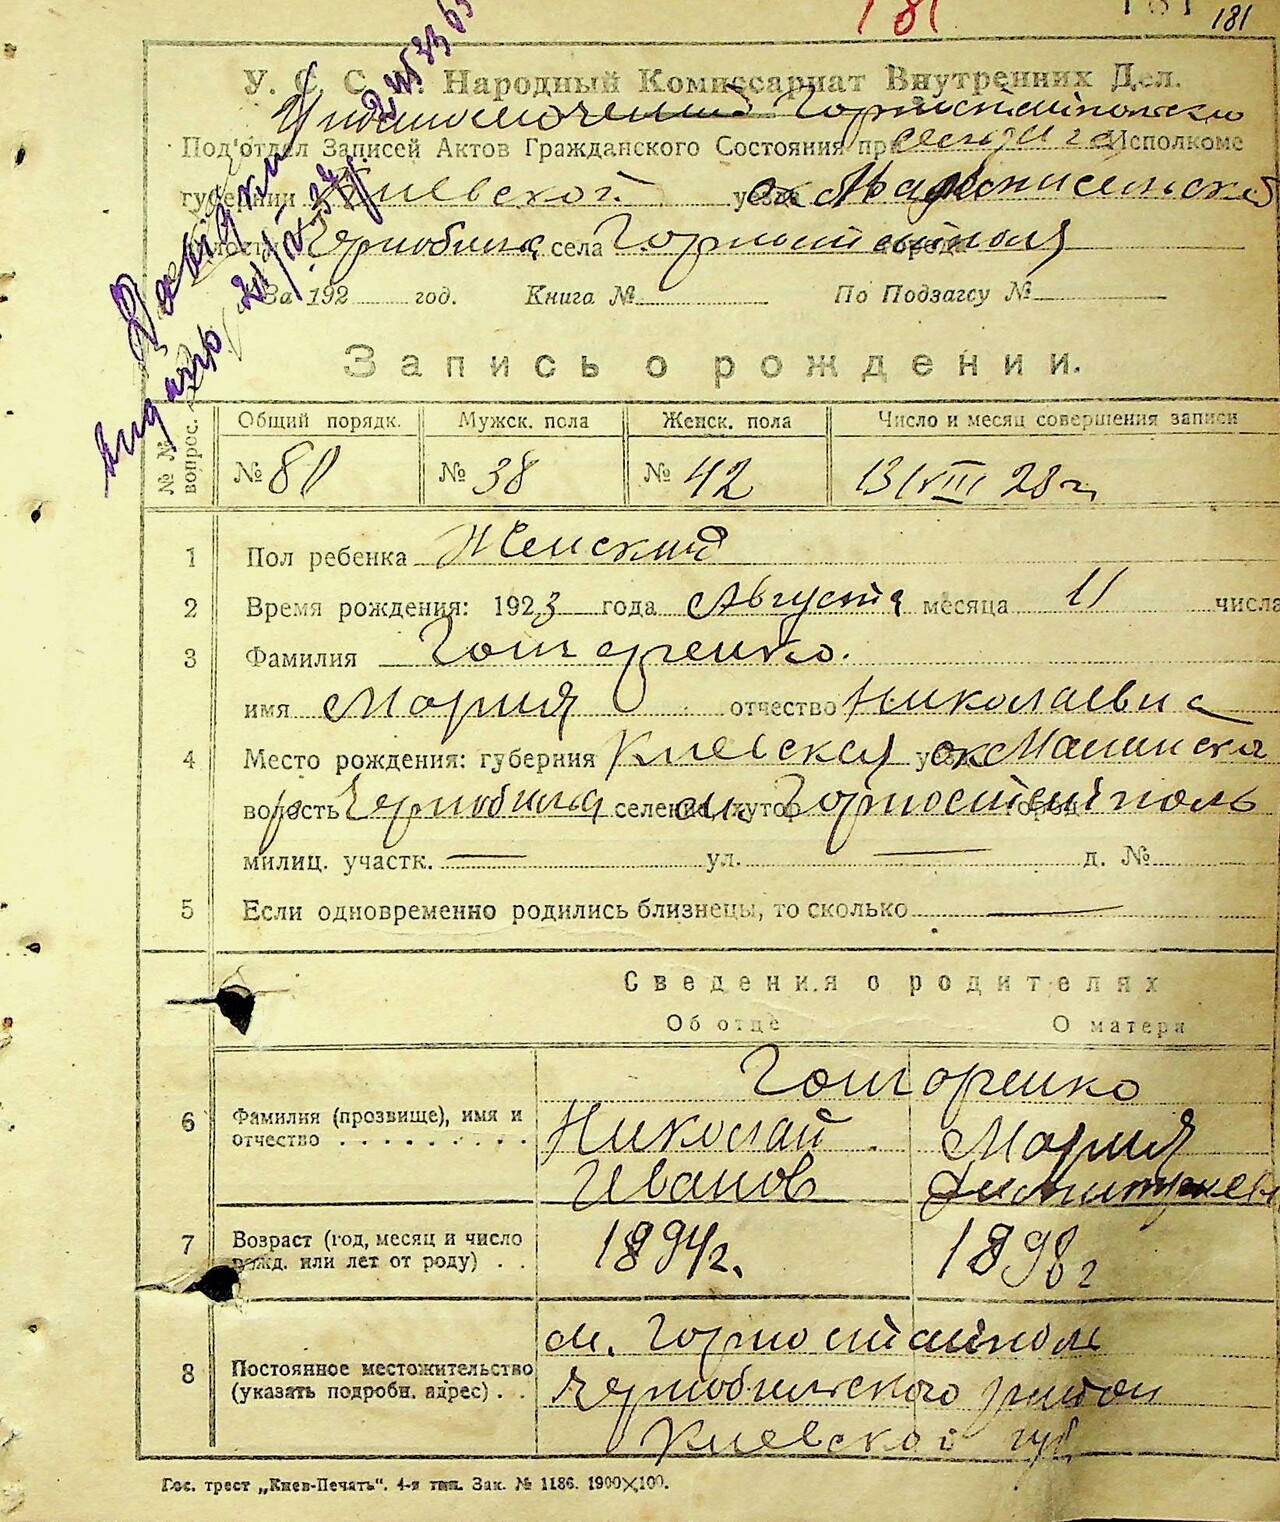 181 181 181
У. С. С. Р. Народный Комиссариат Внутренних Дел.
Подотдел Записей Актов Гражданского Состояния при Исполкоме
губернии Киевской
волости Чернобыльск села Горностайполя города
За 192 год. Книга № По Подзагсу №
Запись о рождении.
№№ вопрос. Общий порядк. Мужск. пола Женск. пола Число и месяц совершения записи
№ 80 № 38 № 42 13/VIII 23 г.
1 Пол ребенка Женский
2 Время рождения: 1923 года Августа месяца 11 числа
3 Фамилия
имя Мория отчество Николаевна
4 Место рождения: губерния Киевская уезд ок
волость район Чернобыльск селение, хутор м. Горностайполь город
милиц. участк. — ул. — д. №
5 Если одновременно родились близнецы, то сколько —
Сведения о родителях
Об отце О матери
6 Фамилия (прозвище), имя и отчество
Николай Мория
Иванов
7 Возраст (год, месяц и число рожд. или лет от роду) 1894 г. 1898 г
8 Постоянное местожительство (указать подробн. адрес)
м. Горностайполь
Чернобильского район
Киевской губ
Гос. трест „Киев-Печать“. 4-я тип. Зак. № 1186. 1900×100.